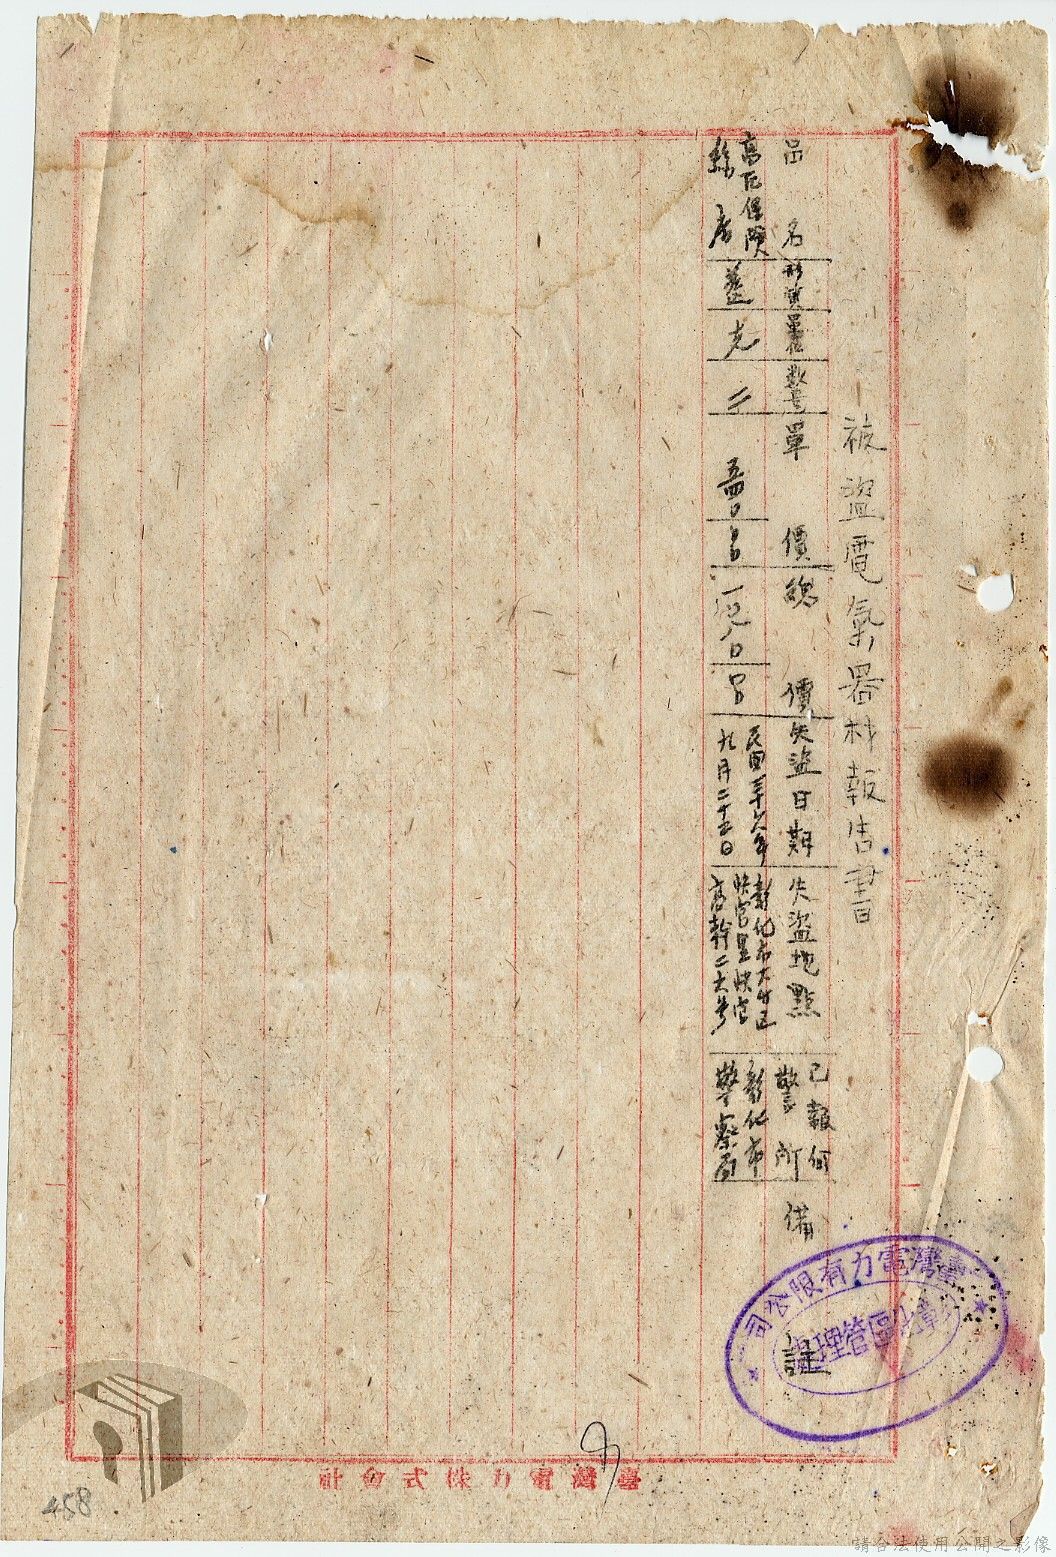 被盜電氣器材報告書
品名
形質
單位
數量
單價
總價
失盜日期
失盜地點
已報何
警所
備註
高圧保險
絲
二
民國三十六年
九月二十五日
彰化市大竹区
快官里快官
高幹二六号
彰化市
警察局
臺灣電力有限公司
彰化區管理處
臺灣電力株式會社
458
請合法使用公開之影像